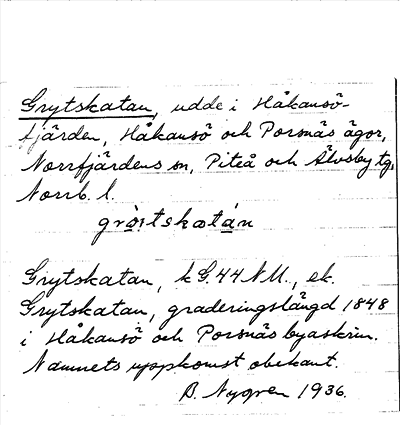 Grytskatan, udde i Håkansö-
fjärden, Håkansö och Porsnäs ägor,
Norrfjärdens sn, Piteå och Älvsby tg,
Norrb. l.
Grytskatan, k G.44 NU., ek.
Grytskatan, graderingslängd 1848
i Håkansö och Porsnäs byaskrin.
Namnets uppkomst obekant.
B. Nygren 1936.